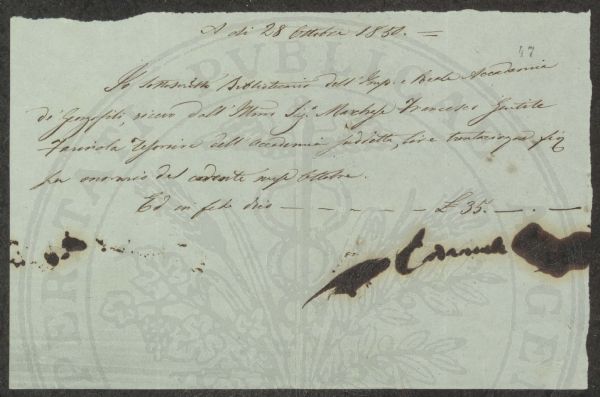 A dì 28 Ottobre 1850. =
47
Io sottoscritto Bibliotecario dell'Imp. e Reale Accademia
dei Georgofili, ricevo dall'Illmo Sig. Marchese Francesco Gentile
Farinola Tesoriere dell'Accademia suddetta, lire trentacinque
per onorario del cadente mese Ottobre.
Ed in fede dico — — — — — £ 35. — . —
PUBBLICA